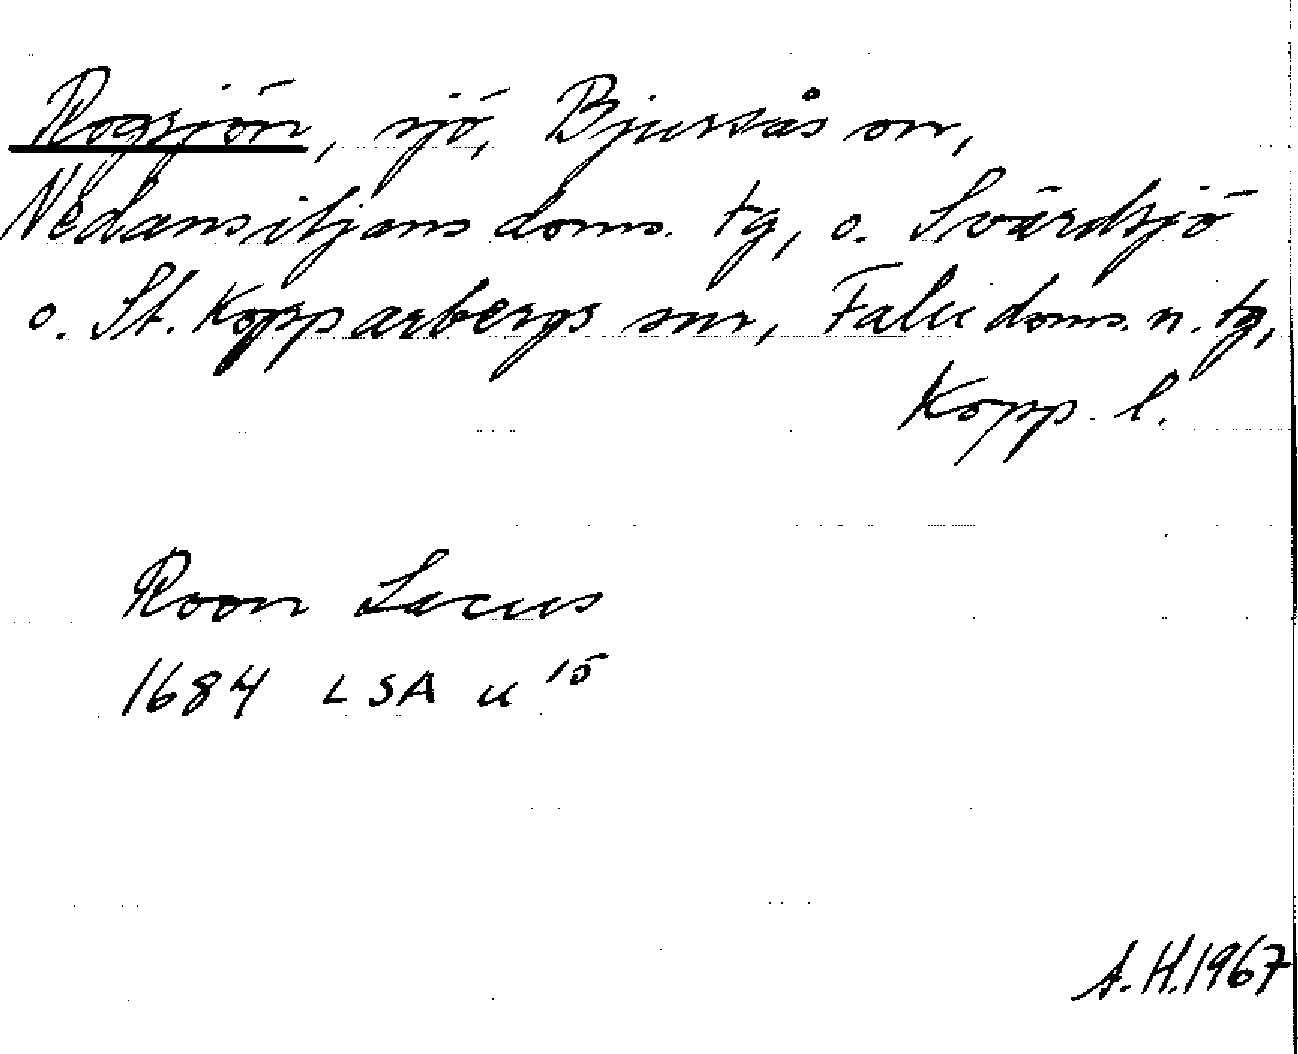 Rogsjön, sjö, Bjursås sn,
Nedansiljans doms. tg, o. Svärdsjö
o. St. Kopparbergs snr, Falu doms. n. tg,
Kopp. l.
Roon Lacus
1684 LSA u 15
A.H. 1967